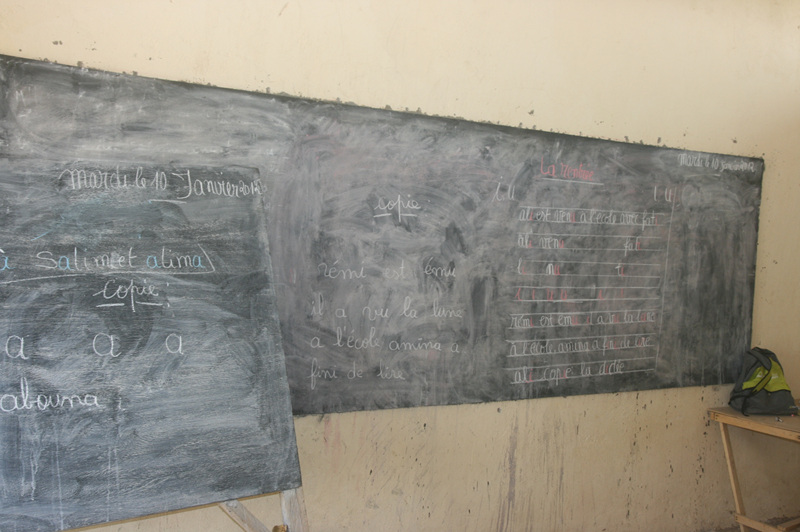 Mardi le 10 Janvier 2012
à Salim et alima
copie :
a a a
abouna
sopie
rémi est ému
il a vu la lune
a l'école amina a
fini de lire
Mardi le 10 Janvier 2012
La
i.u
i u
ali est venu a l'école avec
ali venu
rémi est ému il a vu la lune
à l'école amina a fini de lire
ali copie la dicté